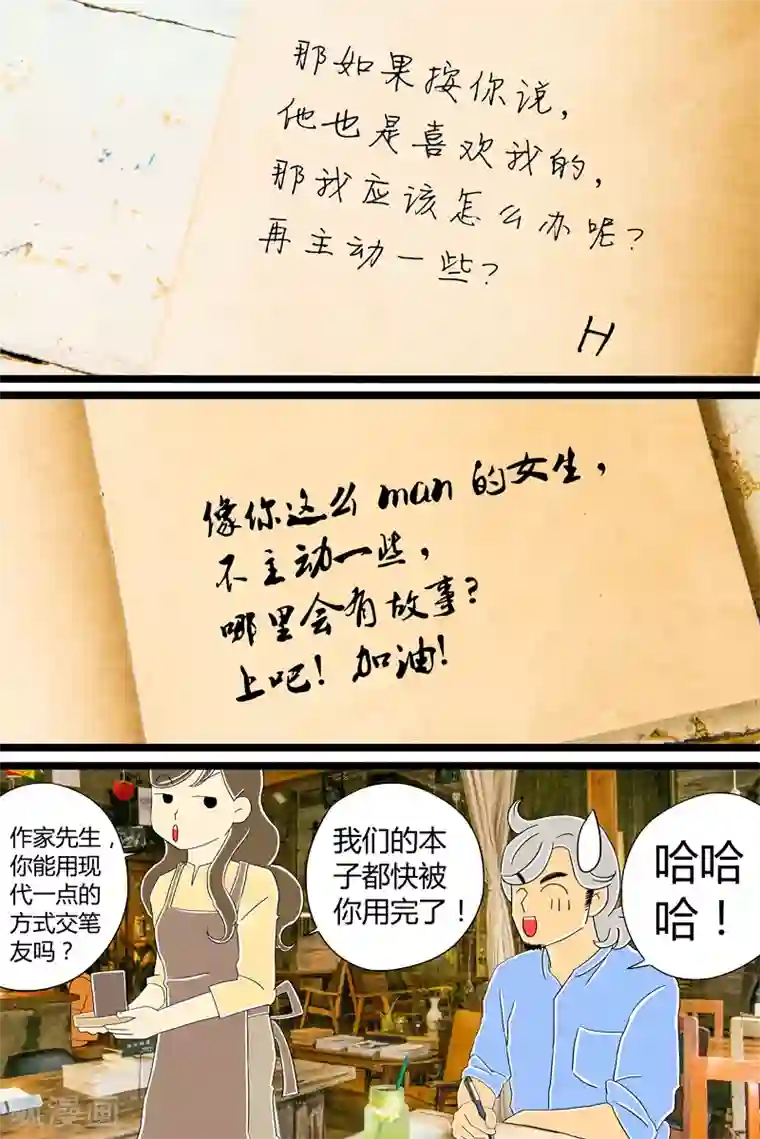 那如果按你说，
他也是喜欢我的，
那我应该怎么办呢？
再主动一些？
H
像你这么man的女生，
不主动一些，
哪里会有故事？
上吧！加油！
作家先生，
你能用现
代一点的
方式交笔
友吗？
我们的本
子都快被
你用完了！
哈哈
哈！